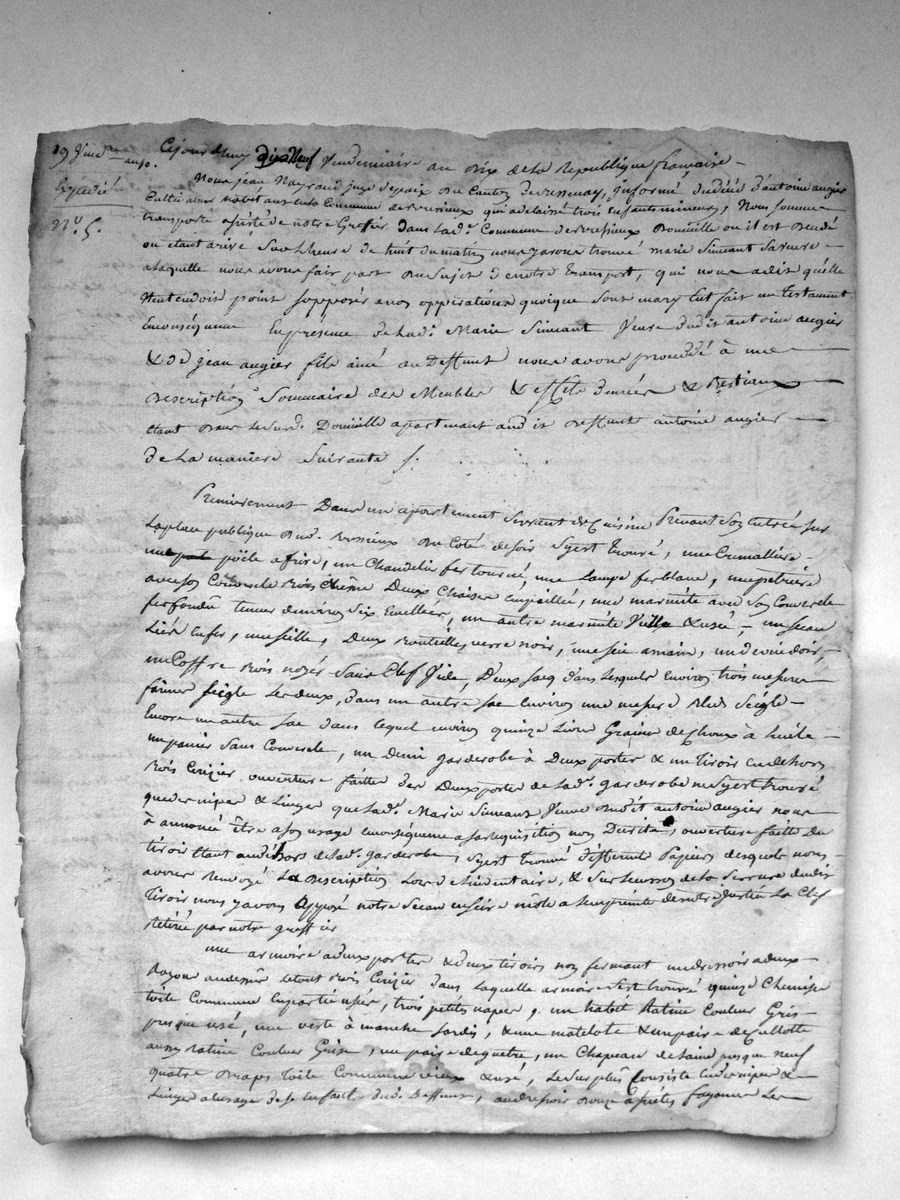 19 Vind.re an 10.
Expedié
N.º 5.
Cejourdhuy dix Neuf Vendemiaire an Dix de la Republique française
Nous jean Nayrand juge depaix du Canton de informé dudécé d'antoine augier
Cultivateur habitant enla Commune de qui adelaissé trois Enfants mineurs, Nous somme
transporté assisté de notre Greffier Dans lad.e Commune de Domicille ou il est decedé
ou etant arivé Sur Lheure de huit du matin nous yavons trouvé marie Simeant saveuve
alaquelle nous avons fait part Du Sujet denotre transport, qui nous adit quélle
Nentendoit point sopposér anos opperations quoique sont mary Eut fait un testament
Enconséquence Enpresence de Lad.e Marie Simeant Veuve dudit antoine augier
& de jean augier fils ainé du Deffunt nous avons procédé à une
Description Sommaire des Meubles & effets denrées & Bestiaux
etant Dans Lesusd. Domicille apartenant audit Deffunt antoine augier
de La maniere Suivante

Premierement Dans un apartement Servant de Cuisine Prenant Son Entrée sur
Laplace publique Dud. du Coté desoir Syest trouvé, une Cremallière
une poële afrire, un Chandelier fer tourné, une Lampe ferblanc, une pétrière
avec son Couvercle Bois Chêne Deux Chaises empaillée, une marmite avec son Couvercle
fer fondû tenue denviron Six Ecuellées, un autre marmite Vielle & usée, un seau
Lié en fer, une seille, Deux Bouteilles verre noir, une sie amain, un devindoir,
un Coffre Bois noyér Sans Clef Vide, Deux Sacq dans Lesquels Environ trois mesures
farine Seigle Les deux, dans un autre sac Environ une mesure Bled Seigle
Encore un autre Sac dans lequel environ quinze Livres Graine de Choux à huile
un panier Sans Couvercle, un Demi garderobe à Deux portes & un tiroir Endehors
Bois Cerizier ouverture faitte des Deux portes de Lad.e garderobe ne Syest trouvé
que & Linges que Lad.e Marie Simeant Veuve Dudit antoine augier nous
à annoncé être a son usage Enconséquence asa requisition non Décrits, ouverture faitte du
tiroir Etant audéhors de Lad.e garderobe, Syest trouvé différents Papiers desquels nous
avons renvoyé La Description Lors de L'inventaire, & Sur de La Serrure dudit
Tiroir nous yavons Apposé notre Sceau en Lempreinte denotre justice La Clef
retirée par notre greffier
une armoire adeux portes & deux tiroirs non fermant un dressoir adeux
Rayons audessus Letout Bois Cerizier dans Laquelle armoire Sest trouvé quinze Chemises
toile Commune Enpartie uséee, trois petits napes, un habit Ratine Couleur Gris
presque usé, une veste à manche Sardis, & une matelote & un paire de Cullotte
aussy ratine Couleur Grise, un paire deguetre, un Chapeau delaine presque neuf
quatre Draps toile Commune vieux & usé, Lesurplus Consiste &
Linges a lusage de se Enfants dud. Deffunt, audressoir Douze assietes fayance Les